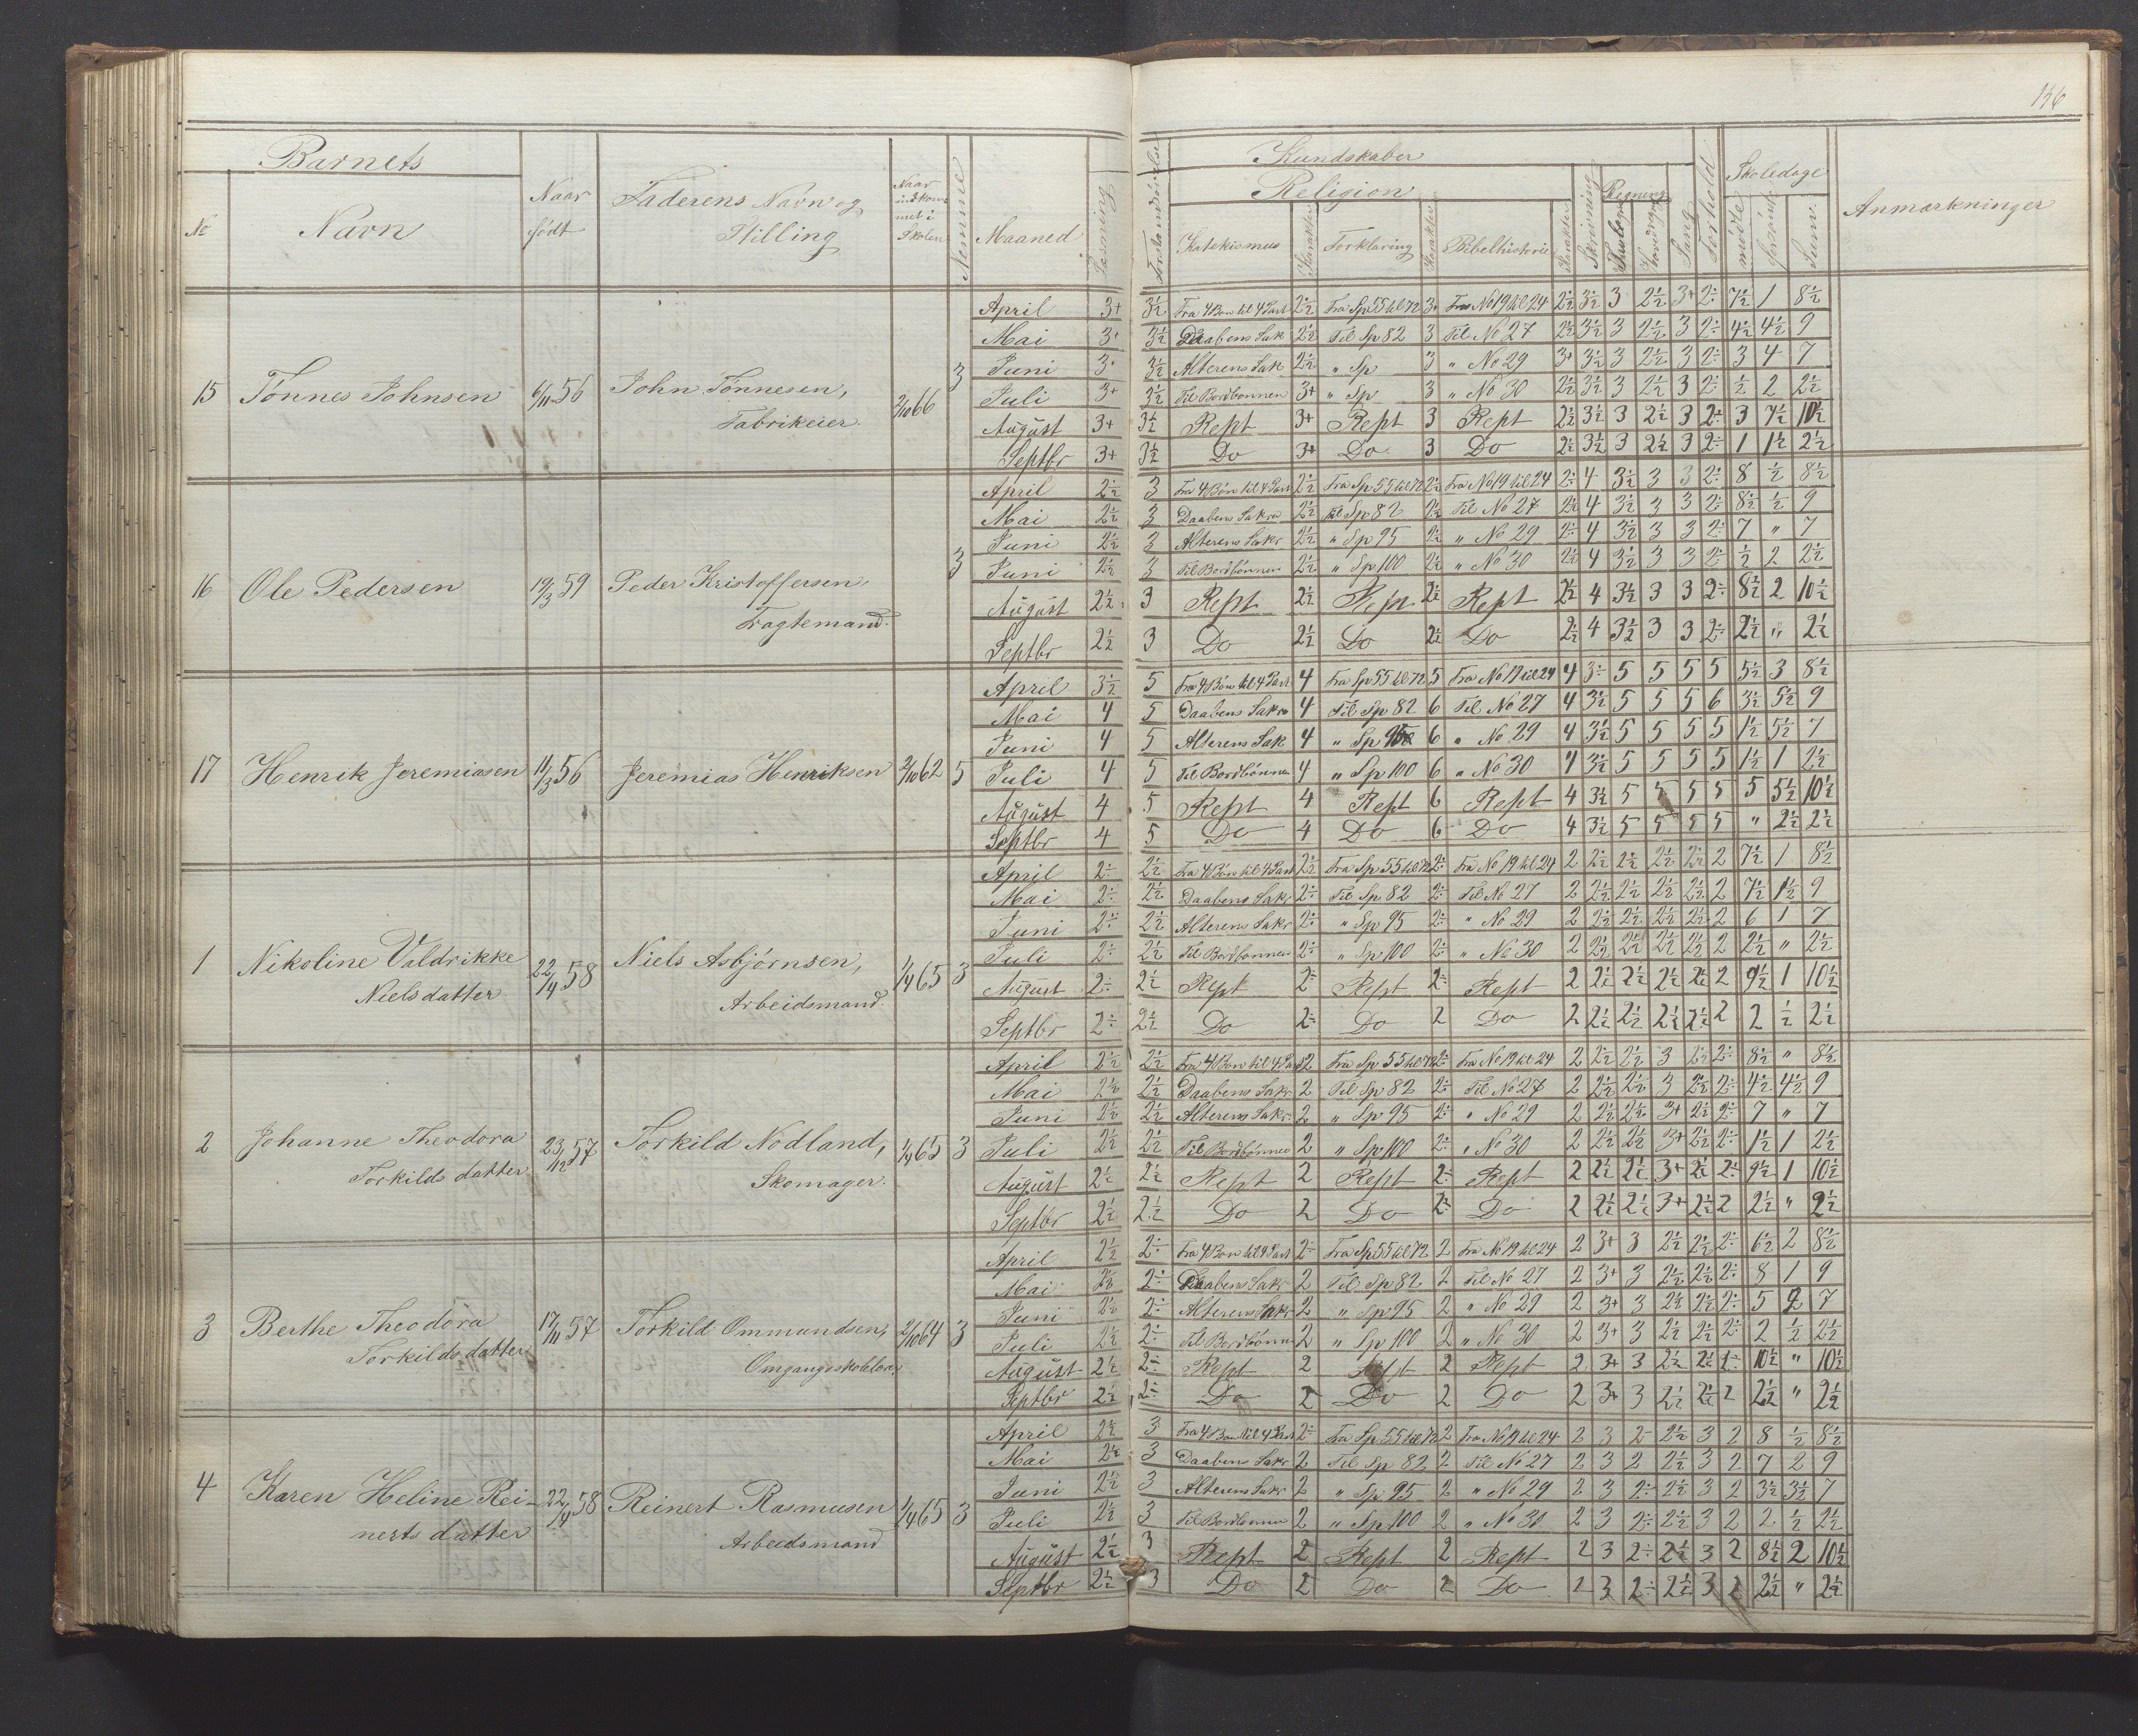 136
Barnets
No
Navn
Naar
født
Faderens Navn og
Stilling
Naar
indkom
met i
Skolen
Nemme
Maaned
Læsning
Forstandsøvelse
Kundskaber
Religion
Katekismus
Karakter
Forklaring
Karakter
Bibelhistorie
Karakter
Skrivning
Regning
Tavle
Hovedregn
Sang
Forhold
Skoledage
mødte
forsømt
Sum.
Anmærkninger
15 Tønnes Johnsen 6/11 56 John Tønnesen,
Fabrikeier. 2/10 66 3
April 3+ 3½ Fra 4 Bøn til 4 Part 2½ Fra Sp 55 til 72 3+ Fra No 19 til 24 2½ 3½ 3 2½ 3+ 2÷ 7½ 1 8½
Mai 3+ 3½ Daabens Sak 2½ Til Sp 82 3 Til No 27 2½ 3½ 3 2½ 3 2÷ 4½ 4½ 9
Juni 3+ 3½ Alterens Sak 2½ " Sp 3 " No 29 3+ 3½ 3 2½ 3 2÷ 3 4 7
Juli 3+ 3½ Til Bordbønnen 3+ " Sp 3 " No 30 2½ 3½ 3 2½ 3 2÷ ½ 2 2½
August 3+ 3½ Rept 3+ Rept 3 Rept 2½ 3½ 3 2½ 3 2+ 3 7½ 10½
Septbr 3+ 3½ Do 3+ Do 3 Do 2½ 3½ 3 2½ 3 2÷ 1 1½ 2½
16 Ole Pedersen 19/3 59 Peder Kristoffersen,
Fragtemand. 3
April 2½ 3 Fra 4 Bøn til 4 Part 2½ Fra Sp 55 til 72 2½ Fra No 19 til 24 2÷ 4 3½ 3 3 2÷ 8 ½ 8½
Mai 2½ 3 Daabens Sakra 2½ Til Sp 82 2½ Til No 27 2½ 4 3½ 3 3 2÷ 8½ ½ 9
Juni 2½ 3 Alterens Sakr 2½ " Sp 95 2½ " No 29 2÷ 4 3½ 3 3 2÷ 7 " 7
Juni 2½ 3 Til Bordbønnen 2½ " Sp 100 2½ " No 30 2½ 4 3½ 3 3 2÷ ½ 2 2½
August 2½ 3 Rept 2½ Rept 2½ Rept 2½ 4 3½ 3 3 2÷ 8½ 2 10½
Septbr 2½ 3 Do 2½ Do 2½ Do 2½ 4 3½ 3 3 2÷ 2½ " 2½
17 Henrik Jeremiasen 11/3 56 Jeremias Henriksen 2/10 62 5
April 3½ 5 Fra 4 Bøn til 4 Part 4 Fra Sp 55 til 72 5 Fra No 19 til 24 4 3÷ 5 5 5 5 5½ 3 8½
Mai 4 5 Daabens Sakra 4 Til Sp 82 6 Til No 27 4 3½ 5 5 5 6 3½ 5½ 9
Juni 4 5 Alterens Sak 4 " Sp 95 6 " No 29 4 3½ 5 5 5 5 1½ 5½ 7
Juli 4 5 Til Bordbønnen 4 " Sp 100 6 " No 30 4 3½ 5 5 5 5 1½ 1 2½
August 4 5 Rept 4 Rept 6 Rept 4 3½ 5 5 5 5 5 5½ 10½
Septbr 4 5 Do 4 Do 6 Do 4 3½ 5 5 5 5 " 2½ 2½
1 Nikoline Valdrikke
Nielsdatter 22/4 58 Niels Asbjørnsen,
Arbeidsmand. 1/4 65 3
April 2÷ 2½ Fra 4 Bøn til 4 Part 2½ Fra Sp 55 til 72 2÷ Fra No 19 til 24 2 2½ 2½ 2½ 2½ 2 7½ 1 8½
Mai 2÷ 2½ Daabens Sakr 2÷ Til Sp 82 2÷ Til No 27 2 2½ 2½ 2½ 2½ 2 7½ 1½ 9
Juni 2÷ 2½ Alterens Sakr 2÷ " Sp 95 2÷ " No 29 2 2½ 2½ 2½ 2½ 2 6 1 7
Juli 2÷ 2½ Til Bordbønnen 2÷ " Sp 100 2÷ " No 30 2 2½ 2½ 2½ 2½ 2 2½ " 2½
August 2÷ 2½ Rept 2÷ Rept 2÷ Rept 2 2½ 2½ 2½ 2½ 2 9½ 1 10½
Septbr 2÷ 2½ Do 2÷ Do 2 Do 2 2½ 2½ 2½ 2½ 2 2 ½ 2½
2 Johanne Theodora
Torkildsdatter 23/12 57 Torkild Nodland,
Skomager. 1/4 65 3
April 2½ 2½ Fra 4 Bøn til 4 Part 2 Fra Sp 55 til 72 2÷ Fra No 19 til 24 2 2½ 2½ 3 2½ 2÷ 8½ " 8½
Mai 2½ 2½ Daabens Sakr 2 Til Sp 82 2÷ Til No 27 2 2½ 2½ 3 2½ 2÷ 4½ 4½ 9
Juni 2½ 2½ Alterens Sakr. 2 " Sp 95 2÷ " No 29 2 2½ 2½ 3+ 2½ 2÷ 7 " 7
Juli 2½ 2½ Til Bordbønnen 2 " Sp 100 2÷ " No 30 2 2½ 2½ 3+ 2½ 2÷ 1½ 1 2½
August 2½ 2½ Rept 2 Rept 2÷ Rept 2 2½ 2½ 3+ 2½ 2÷ 9½ 1 10½
Septbr 2½ 2½ Do 2 Do 2÷ Do 2 2½ 2½ 3+ 2½ 2 2½ " 2½
3 Berthe Theodora
Torkildsdatter 17/11 57 Torkild Ommundsen,
Omgangsskolelær. 2/10 64 3
April 2½ 2÷ Fra 4 Bøn til 4 Part 2÷ Fra Sp 55 til 72 2 Fra No 19 til 24 2 3+ 3 2½ 2½ 2÷ 6½ 2 8½
Mai 2½ 2÷ Daabens Sakr 2 Til Sp 82 2 Til No 27 2 3+ 3 2½ 2½ 2÷ 8 1 9
Juni 2½ 2÷ Alterens Sakr 2 " Sp 95 2 " No 29 2 3+ 3 2½ 2½ 2÷ 5 2 7
Juli 2½ 2÷ Til Bordbønnen 2 " Sp 100 2 " No 30 2 3+ 3 2½ 2½ 2÷ 2 ½ 2½
August 2½ 2÷ Rept 2 Rept 2 Rept 2 3+ 3 2½ 2½ 2÷ 10½ " 10½
Septbr 2½ 2÷ Do 2 Do 2 Do 2 3+ 3 2½ 2½ 2 2½ " 2½
4 Karen Heline Rei-
nertsdatter 22/4 58 Reinert Rasmusen
Arbeidsmand 1/4 65 3
April 2½ 3 Fra 4 Bøn til 4 Part 2÷ Fra Sp 55 til 72 2 Fra No 19 til 24 2 3 2÷ 2½ 3 2 8 ½ 8½
Mai 2½ 3 Daabens Sakr 2 Til Sp 82 2 Til No 27 2 3 2 2½ 3 2 7 2 9
Juni 2½ 3 Alterens Sakr 2 " Sp 95 2 " No 29 2 3 2÷ 2½ 3 2 3½ 3½ 7
Juli 2½ 3 Til Bordbønnen 2 " Sp 100 2 " No 30 2 3 2÷ 2½ 3 2 2 ½ 2½
August 2½ 3 Rept 2 Rept 2 Rept 2 3 2÷ 2½ 3 2 8½ 2 10½
Septbr 2½ 3 Do 2 Do 2 Do 2 3 2÷ 2½ 3 2 2½ " 2½